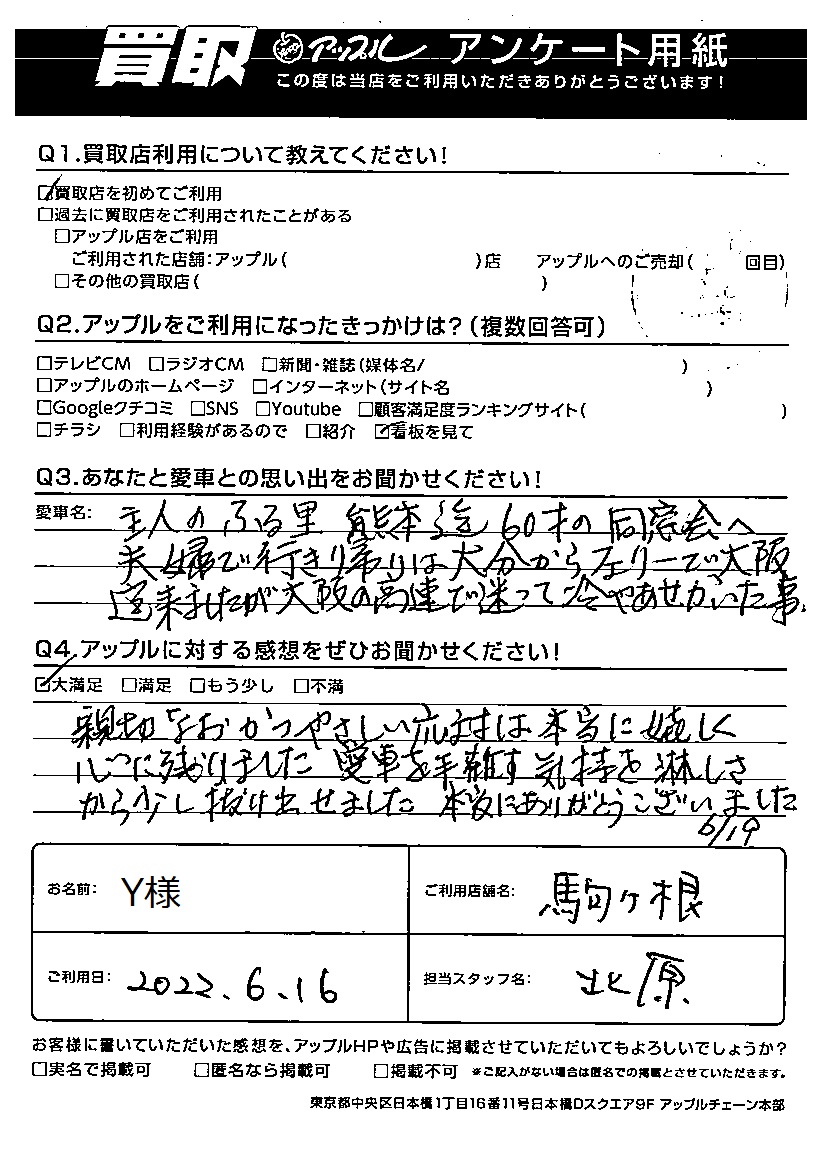 買取 アップル アンケート用紙
この度は当店をご利用いただきありがとうございます！
Q1.買取店利用について教えてください！
☑買取店を初めてご利用
□過去に買取店をご利用されたことがある
□アップル店をご利用
ご利用された店舗：アップル（　　　）店　アップルへのご売却（　　回目）
□その他の買取店（　　　）
Q2.アップルをご利用になったきっかけは？（複数回答可）
□テレビCM　□ラジオCM　□新聞・雑誌（媒体名/　　　）
□アップルのホームページ　□インターネット（サイト名　　　）
□Googleクチコミ　□SNS　□Youtube　□顧客満足度ランキングサイト（　　　）
□チラシ　□利用経験があるので　□紹介　☑看板を見て
Q3.あなたと愛車との思い出をお聞かせください！
愛車名： 主人のふる里 熊本迄 60才の同窓会へ
夫婦で行き帰りは大分からフェリーで大阪
迄来ましたが大阪の高速で迷って冷やあせかいた事。
Q4.アップルに対する感想をぜひお聞かせください！
☑大満足　□満足　□もう少し　□不満
親切なおかつやさしい応対は本当に嬉しく
心に残りました 愛車を手離す気持を淋しさ
から少し抜け出せました 本当にありがとうございました
6/19
お名前： Y様
ご利用店舗名： 駒ヶ根
ご利用日： 2022.6.16
担当スタッフ名： 北原
お客様に書いていただいた感想を、アップルHPや広告に掲載させていただいてもよろしいでしょうか？
□実名で掲載可　□匿名なら掲載可　□掲載不可　※ご記入がない場合は匿名での掲載とさせていただきます。
東京都中央区日本橋1丁目16番11号日本橋Dスクエア9F アップルチェーン本部